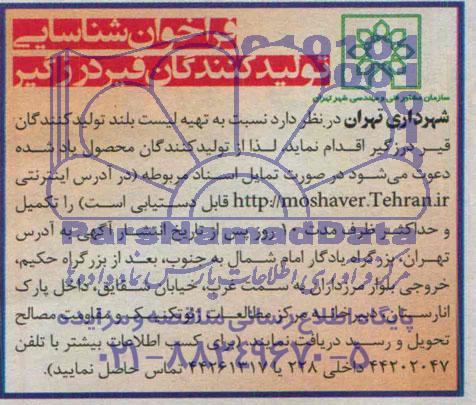 فراخوان شناسایی
تولیدکنندگان قیر درزگیر
سازمان مشاور فنی و مهندسی شهر تهران
شهرداری تهران در نظر دارد نسبت به تهیه لیست بلند تولیدکنندگان
قیر درزگیر اقدام نماید، لذا از تولیدکنندگان محصول یاد شده
دعوت می‌شود در صورت تمایل اسناد مربوطه (در آدرس اینترنتی
http://moshaver.Tehran.ir قابل دستیابی است) را تکمیل
و حداکثر ظرف مدت ۱۰ روز پس از تاریخ انتشار آگهی به آدرس
تهران، بزرگراه یادگار امام شمال به جنوب، بعد از بزرگراه حکیم،
خروجی بلوار مرزداران به سمت غرب، خیابان شقایق، داخل پارک
انارستان، دبیرخانه مرکز مطالعات ژئوتکنیک و مقاومت مصالح
تحویل و رسید دریافت نمایند. (برای کسب اطلاعات بیشتر با تلفن
۴۴۲۰۲۰۴۷ داخلی ۲۲۸ یا ۴۴۲۶۱۳۱۷ تماس حاصل نمایید).
ParsNamadData
مرکز فرآوری اطلاعات پارس نماد داده ها
پایگاه اطلاع رسانی مناقصه و مزایده
۰۲۱-۸۸۳۴۹۶۷۰-۵